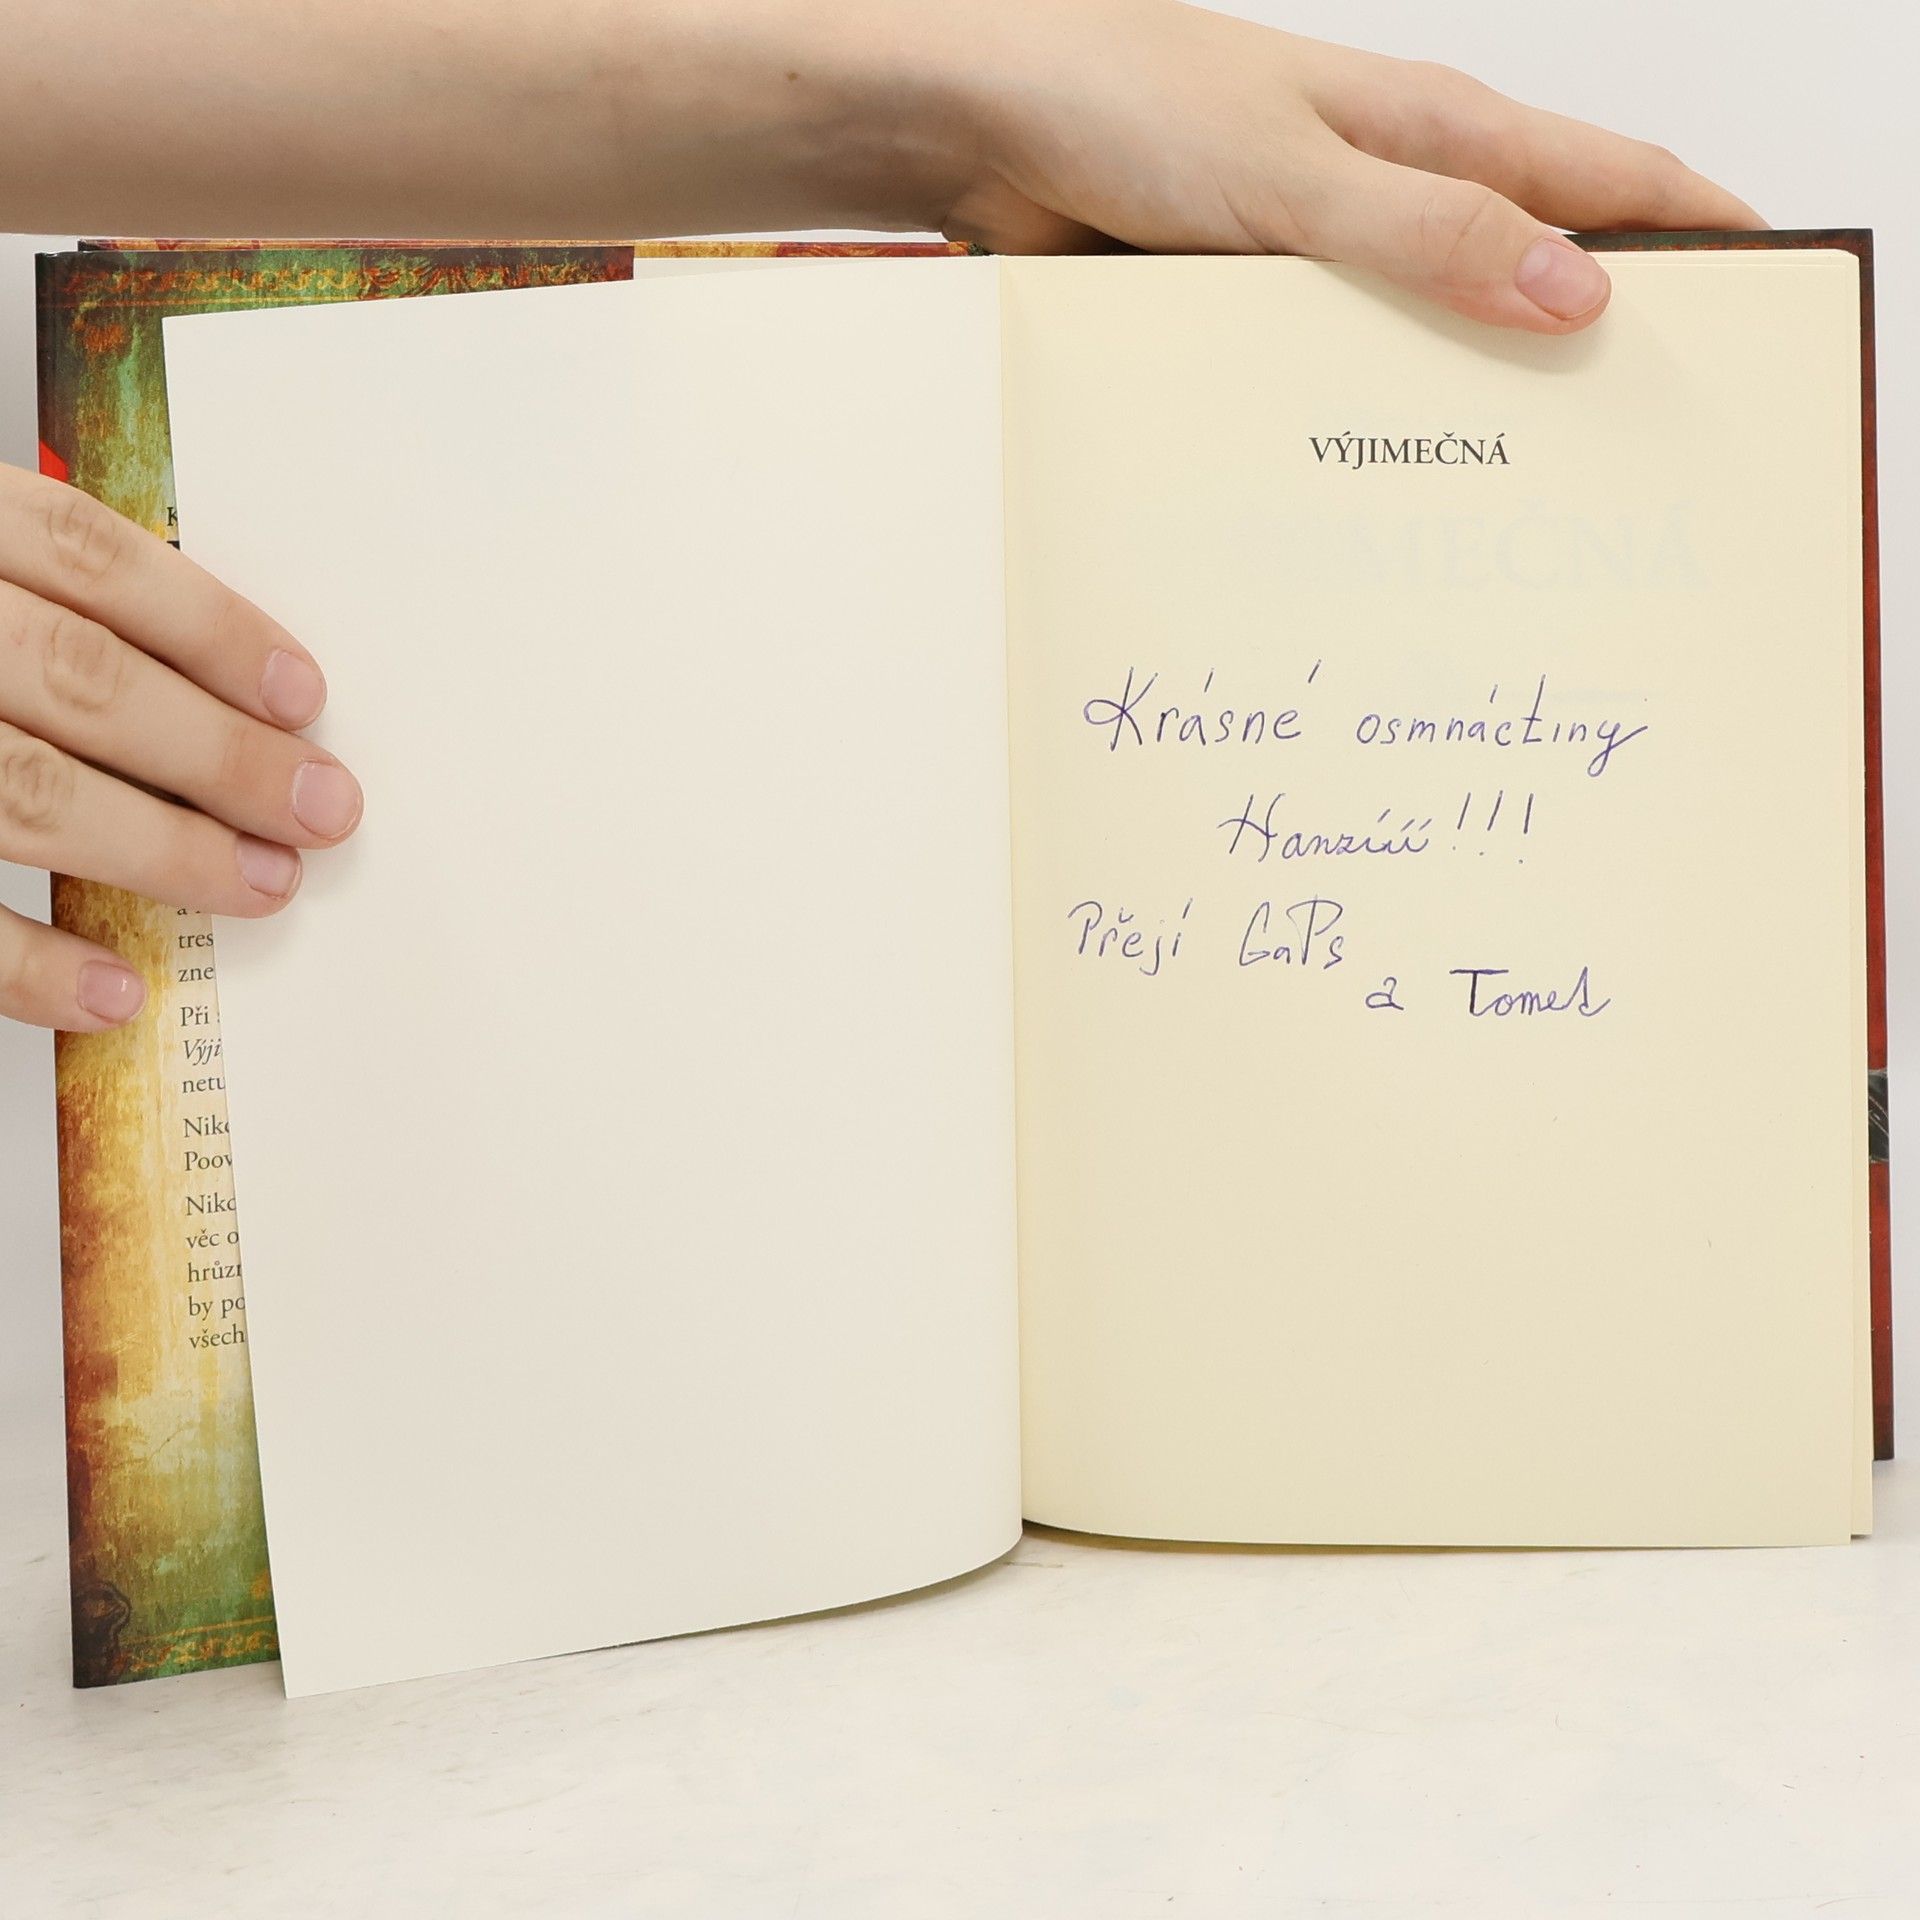 K
tres
zne
Při
Výji
netu
Niko
Poov
Niko
věc o
hrůzn
by po
všech
VÝJIMEČNÁ
Krásné osmnáctiny
Hanzííí!!!
Přejí GaPs
a Tomeš